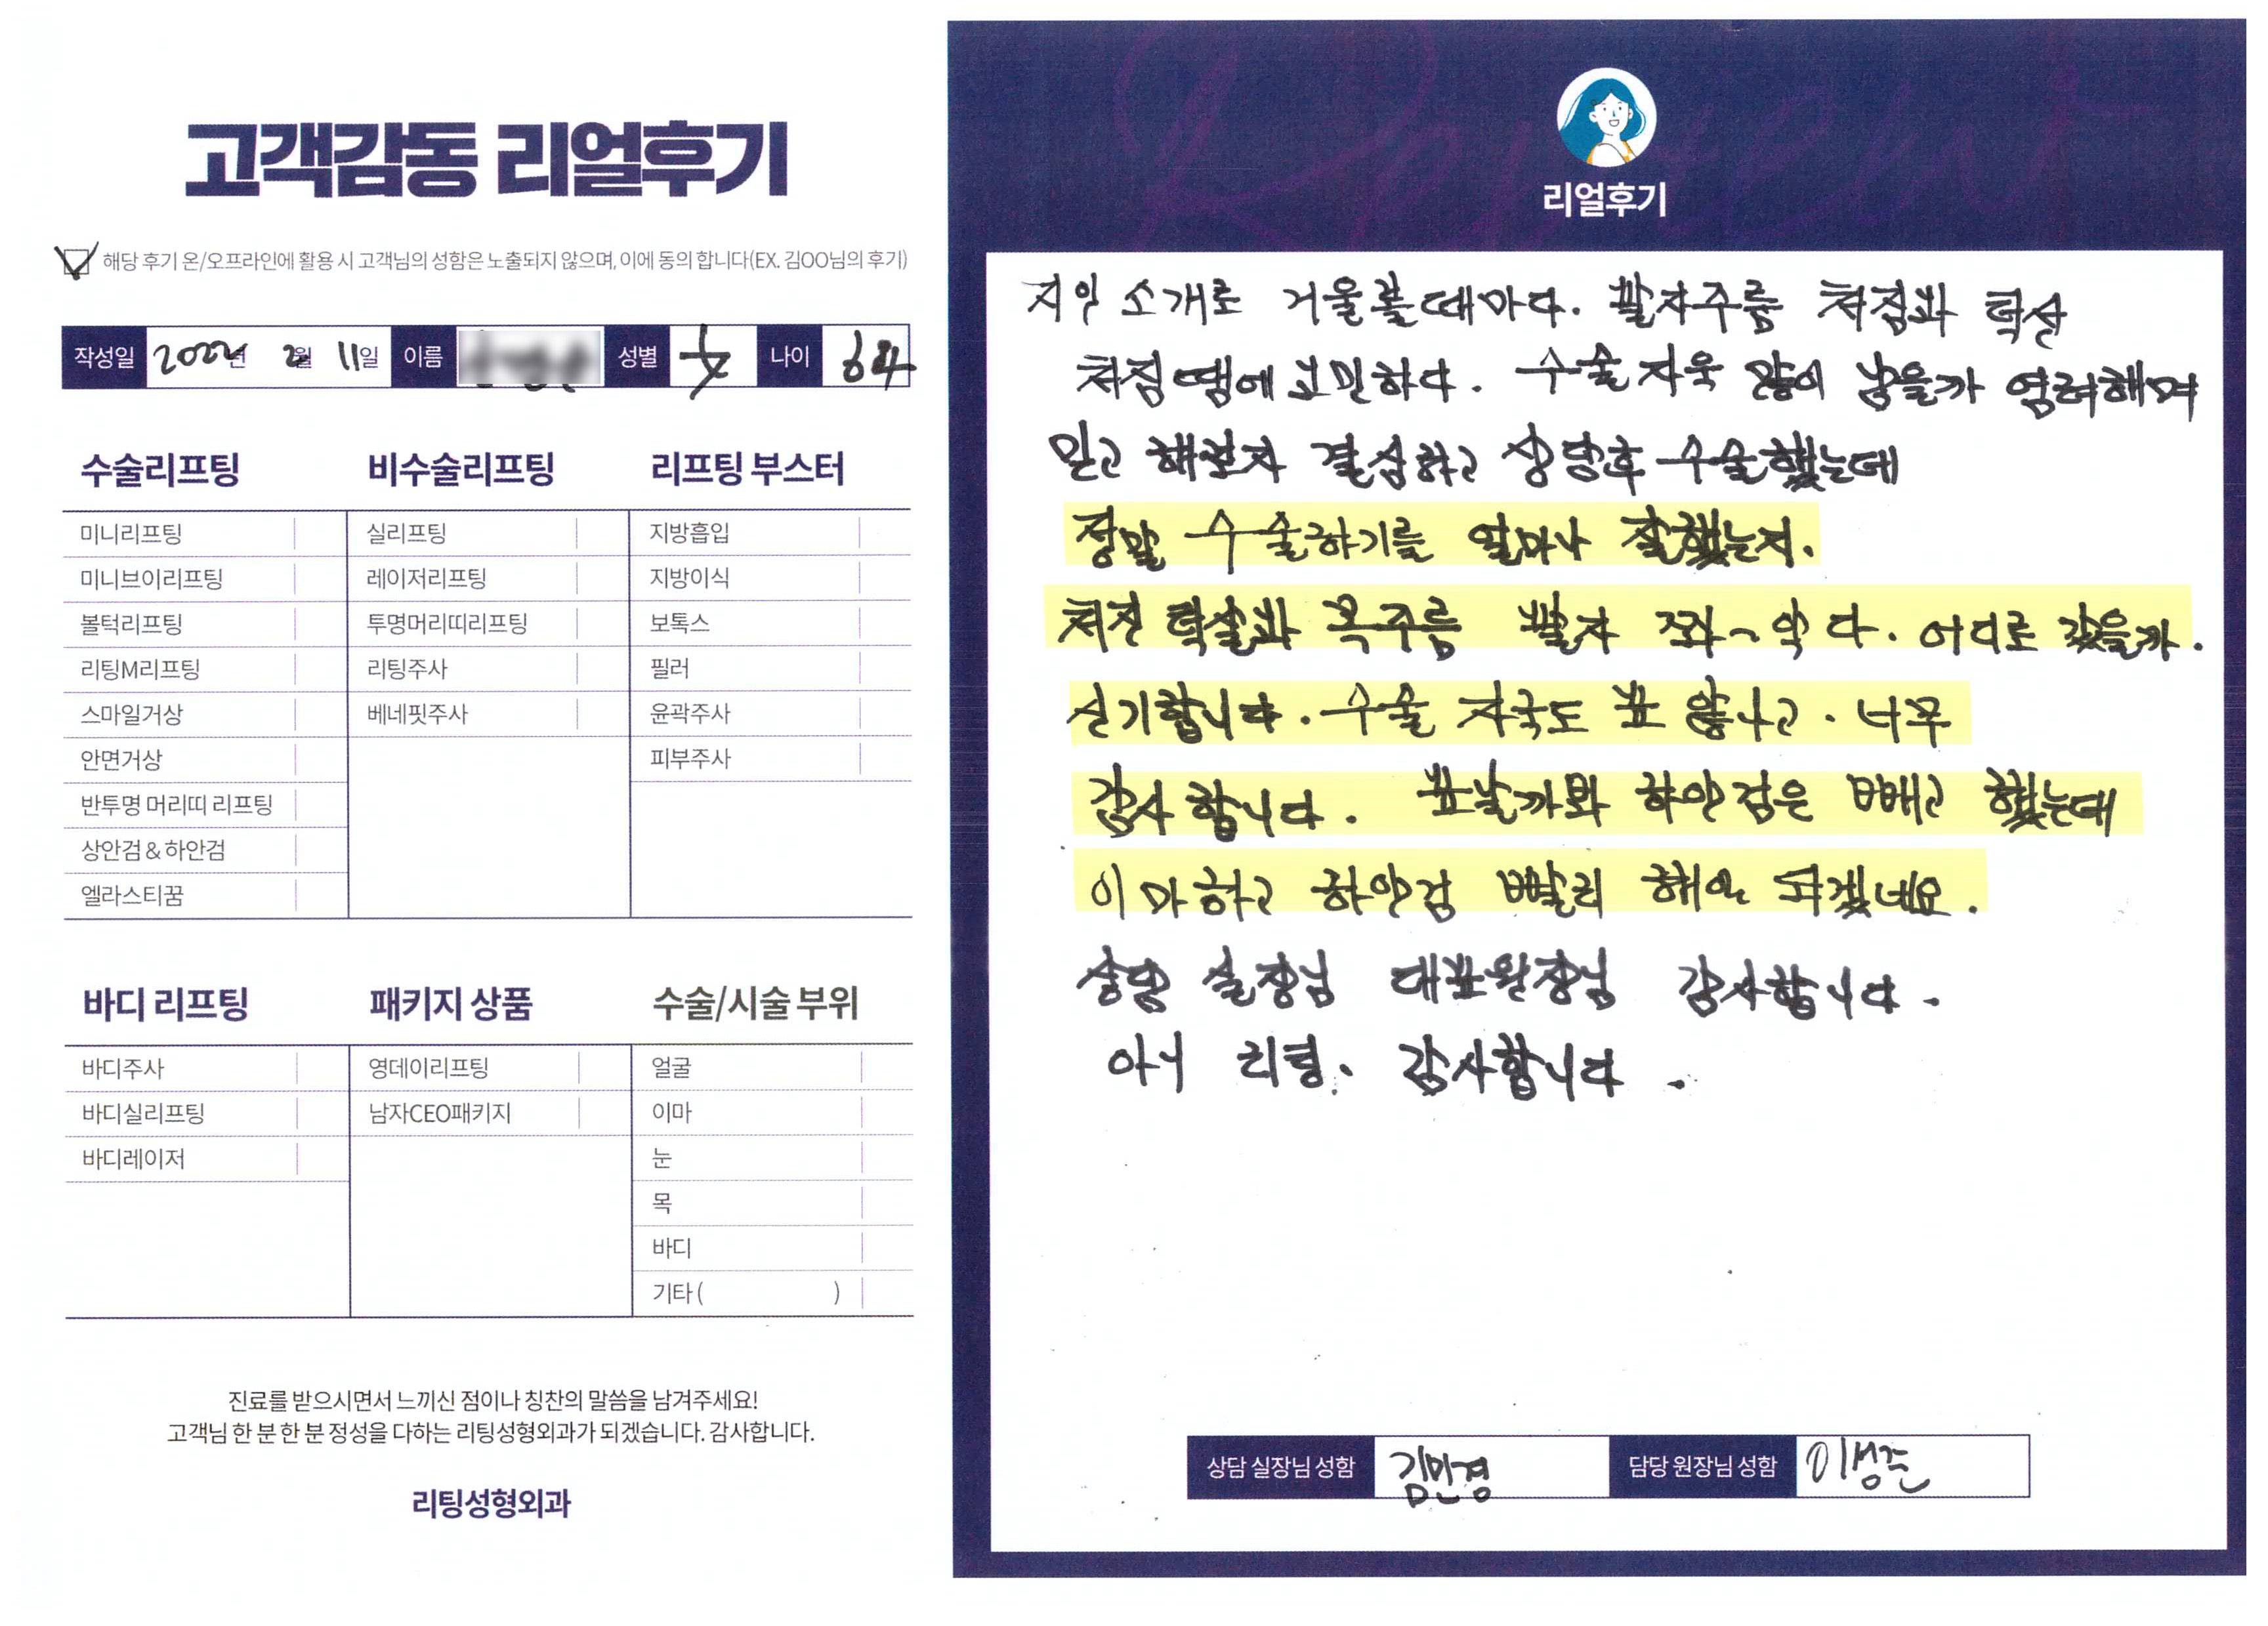 고객감동 리얼후기
해당 후기 온/오프라인에 활용 시 고객님의 성함은 노출되지 않으며, 이에 동의 합니다(EX. 김OO님의 후기)
작성일 2022년 2월 11일 이름 성별 女 나이 64
수술리프팅
미니리프팅
미니브이리프팅
볼턱리프팅
리팅M리프팅
스마일거상
안면거상
반투명 머리띠 리프팅
상안검 & 하안검
엘라스티꿈
비수술리프팅
실리프팅
레이저리프팅
투명머리띠리프팅
리팅주사
베네핏주사
리프팅 부스터
지방흡입
지방이식
보톡스
필러
윤곽주사
피부주사
바디 리프팅
바디주사
바디실리프팅
바디레이저
패키지 상품
영데이리프팅
남자CEO패키지
수술/시술 부위
얼굴
이마
눈
목
바디
기타 ( )
진료를 받으시면서 느끼신 점이나 칭찬의 말씀을 남겨주세요!
고객님 한 분 한 분 정성을 다하는 리팅성형외과가 되겠습니다. 감사합니다.
리팅성형외과
리얼후기
지인 소개로 거울볼때마다. 팔자주름 쳐짐과 턱살
쳐짐땜에 고민하다. 수술자욱 많이 남을까 염려해며
믿고 해보자 결심하고 상담후 수술했는데
정말 수술하기를 얼마나 잘했는지.
쳐진 턱살과 목주름 팔자 쫘~악 다. 어디로 갔을까.
신기합니다. 수술 자국도 표 않나고. 너무
감사합니다. 표날까봐 하안검은 빼고 했는대
이마하고 하안검 빨리 해야 되겠네요.
상담 실장님 대표원장님 감사합니다.
아니 리팅. 감사합니다.
상담 실장님 성함 김민경 담당 원장님 성함 이성준